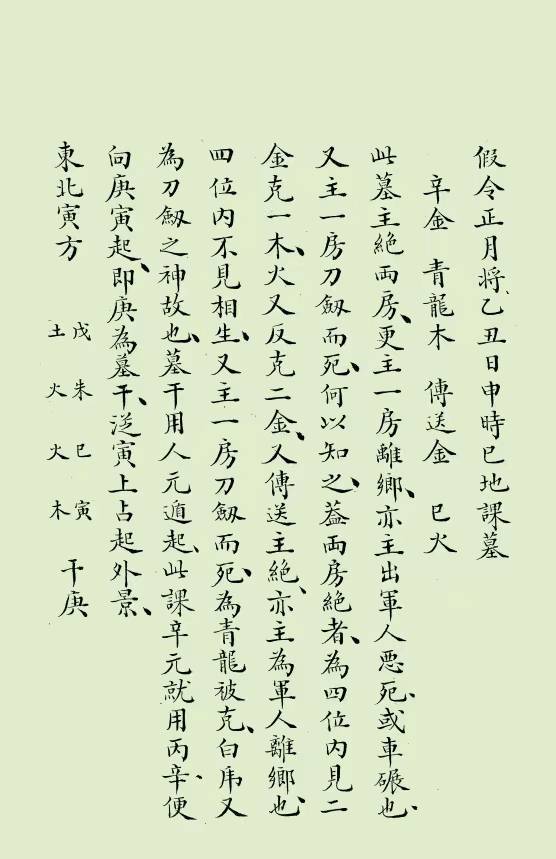 假令正月將乙丑日申時巳地課墓
辛金　青龍木　傳送金　巳火
此墓主絕兩房更主一房離鄉亦主出軍人惡死或車碾也
又主一房刀劔而死何以知之葢兩房絕者為四位內見二
金克一木火又反克二金又傳送主絕亦主為軍人離鄉也
四位內不見相生又主一房刀劔而死為青龍被克白虎又
為刀劔之神故也墓干用人元遁起此課辛元就用丙辛便
向庚寅起即庚為墓干從寅上占起外景
東北寅方
戊　朱　巳　寅
土　火　火　木
干庚